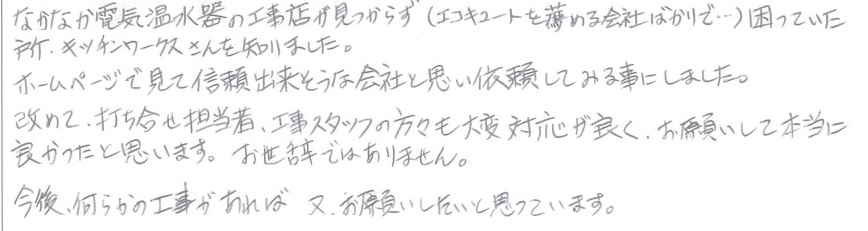 なかなか電気温水器の工事店が見つからず(エコキュートを薦める会社ばかりで…)困っていた
所、キッチンワークスさんを知りました。
ホームページで見て信頼出来そうな会社と思い依頼してみる事にしました。
改めて、打ち合せ担当者、工事スタッフの方々も大変対応が良く、お願いして本当に
良かったと思います。お世辞ではありません。
今後、何らかの工事があれば 又、お願いしたいと思っています。